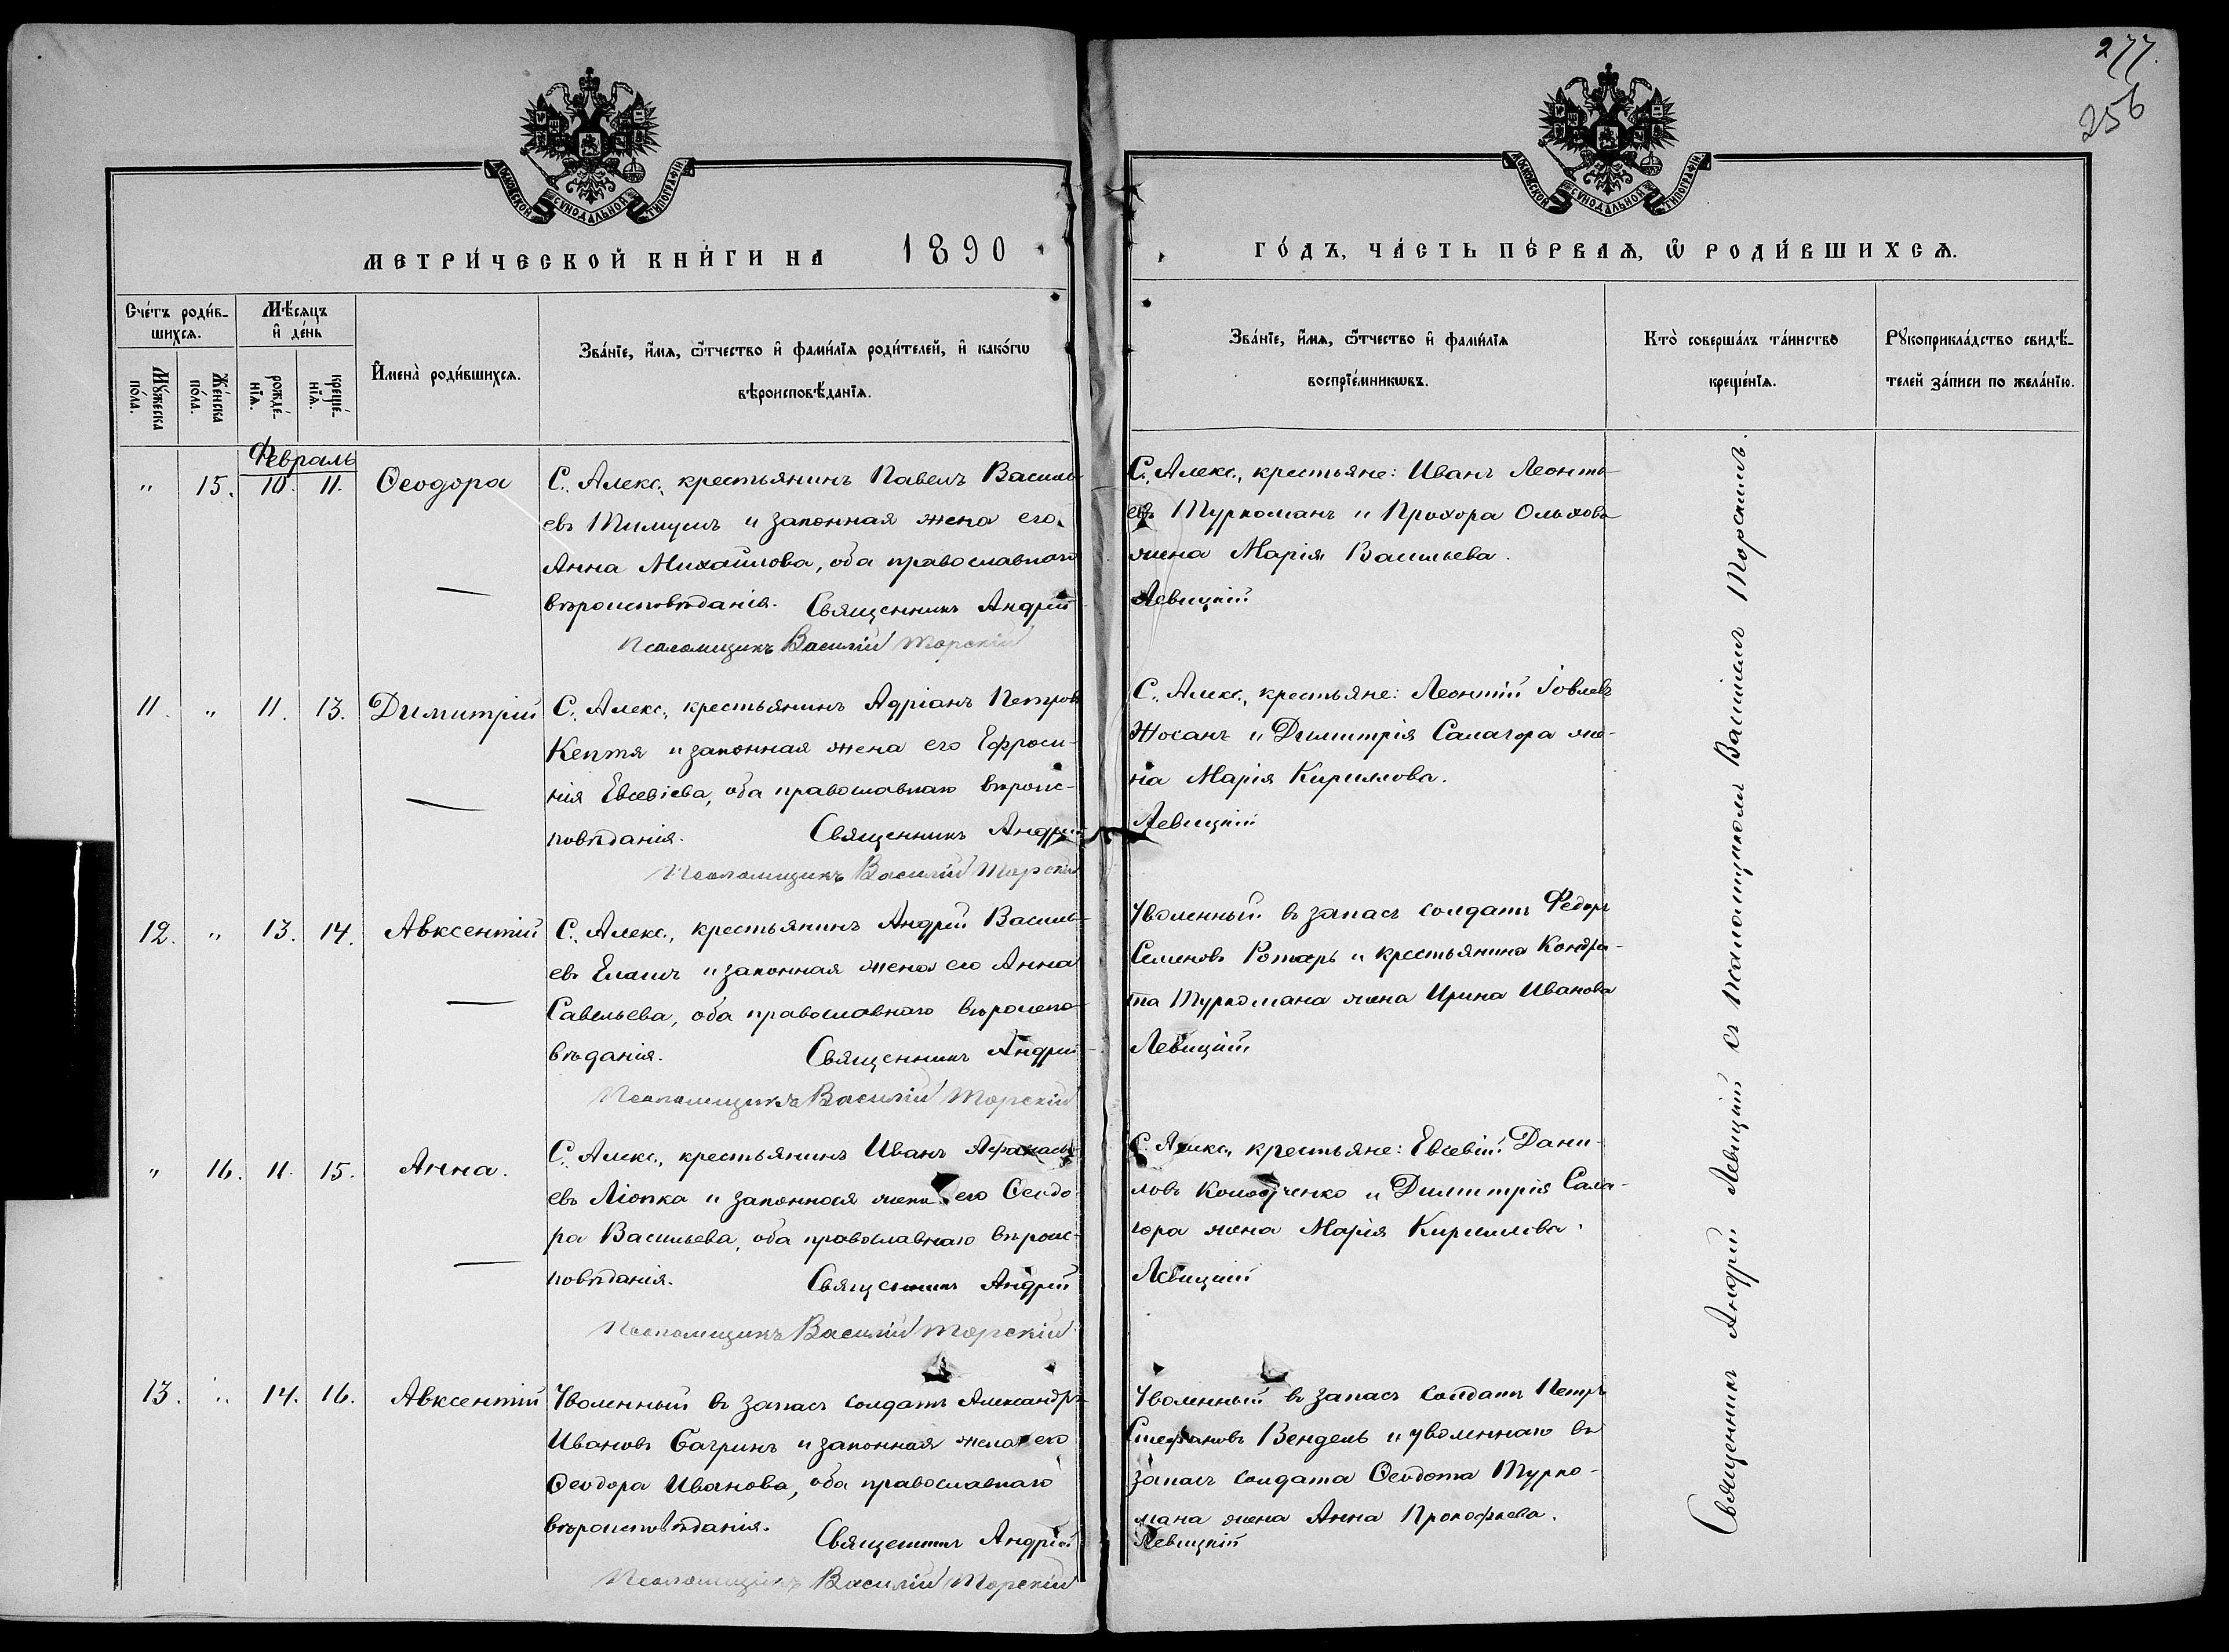 277.
256
МОСКОВСКОЙ СѴНОДАЛЬНОЙ ТИПОГРАФІИ
МОСКОВСКОЙ СѴНОДАЛЬНОЙ ТИПОГРАФІИ
МЕТРИ́ЧЕСКОЙ КНИ́ГИ НА 1890
ГО́ДЪ, ЧА́СТЬ ПЕ́РВАѦ, Ѿ РОДИ́ВШИХСѦ.
Счéтъ роди́в-
шихсѧ.
Мѣ́сяцъ
и҆ дéнь
Мꙋ́жеска
по́ла.
Же́нска
по́ла.
рожде́-
нїѧ.
креще́-
нїѧ.
И҆менà роди́вшихсѧ.
Зва́нїе, и҆́мѧ, ѻ҆́тчество и҆ фами́лїѧ роди́телей, и҆ како́гѡ
вѣроисповѣ́данїѧ.
Зва́нїе, и҆́мѧ, ѻ҆́тчество и҆ фами́лїѧ
воспрїе́мникѡвъ.
Кто̀ соверша́лъ та́инство
креще́нїѧ.
Рꙋкоприкла́дство свидѣ́-
телей за́писи по жела́нїю.
Февраль
" 15. 10. 11. Ѳеодора
С. Алекс., крестьянинъ Павелъ Василь-
евъ Тимушъ и законная жена его
Анна Михайлова, оба православнаго
вѣроисповѣданія. Священникъ Андрей
Псаломщикъ Василій Торскій
С. Алекс., крестьяне: Иванъ Леонть-
евъ Туркоманъ и Прохора Ольхова
жена Марія Васильева.
Левицкій
11. " 11. 13. Димитрій
С. Алекс., крестьянинъ Адріанъ Петровъ
Кептя и законная жена его Ефроси-
нія Евсевіева, оба православнаго вѣроис-
повѣданія. Священникъ Андрей
Псаломщикъ Василій Торскій
С. Алекс., крестьяне: Леонтій Іовлевъ
Жосанъ и Димитрія Салагора же-
на Марія Кириллова.
Левицкій
12. " 13. 14. Авксентій
С. Алекс., крестьянинъ Андрей Василь-
евъ и законная жена его Анна
Савельева, оба православнаго вѣроиспо-
вѣданія. Священникъ Андрей
Псаломщикъ Василій Торскій
Уволенный въ запасъ солдатъ Федоръ
Семеновъ Ротарь и крестьянина Кондра-
та Туркомана жена Ирина Иванова
Левицкій
" 16. 11. 15. Анна.
С. Алекс., крестьянинъ Иванъ Афанась-
евъ Ліопка и законная жена его Ѳеодо-
ра Васильева, оба православнаго вѣроис-
повѣданія. Священникъ Андрей
Псаломщикъ Василій Торскій
С. Алекс., крестьяне: Евсевій Дани-
ловъ и Димитрія Сала-
гора жена Марія Кириллова.
Левицкій
13. " 14. 16. Авксентій
Уволенный въ запасъ солдатъ Александръ
Ивановъ Багринъ и законная жена его
Ѳеодора Иванова, оба православнаго
вѣроисповѣданія. Священникъ Андрей
Псаломщикъ Василій Торскій
Уволенный въ запасъ солдатъ Петръ
Стефановъ Вендель и уволеннаго въ
запасъ солдата Ѳеодота Турко-
мана жена Анна Прокофьева.
Левицкій
Священникъ Андрей Левицкій съ псаломщикомъ Василіемъ Торскимъ.